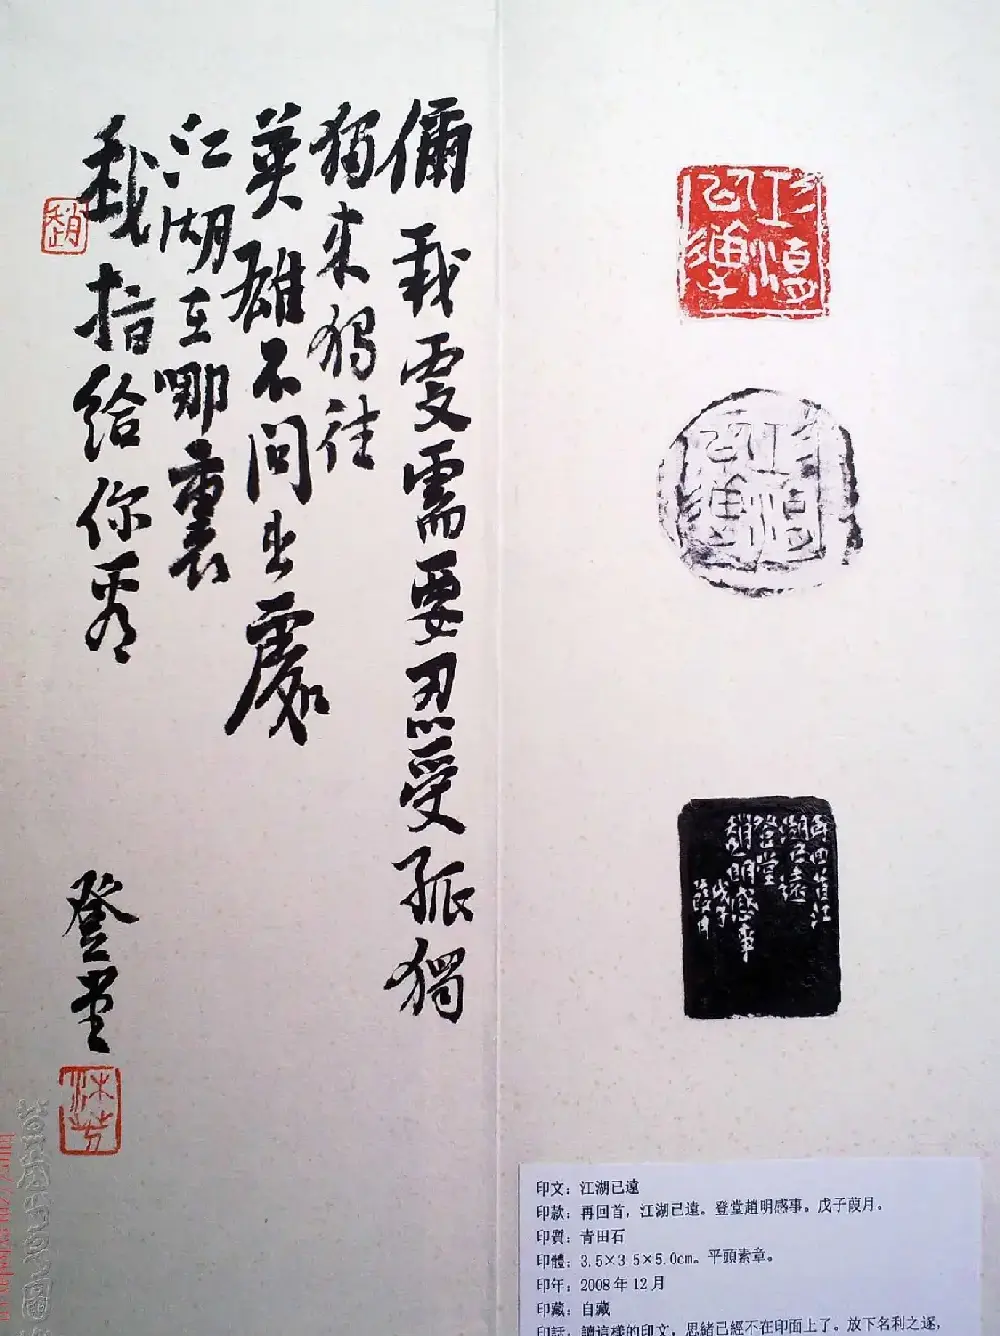 儞我需要忍受孤獨
獨來獨往
英雄不問出處
江湖在哪裏
我指給你看
登堂
趙
江湖已遠
江湖已遠
再回首江
湖已遠
登堂
趙明感事
戊子
葭月
印文：江湖已遠
印款：再回首，江湖已遠。登堂趙明感事。戊子葭月。
印質：青田石
印體：3.5×3.5×5.0cm。平頭素章。
印年：2008年12月
印藏：自藏
印話：讀這樣的印文，思緒已經不在印面上了。放下名利之逐，